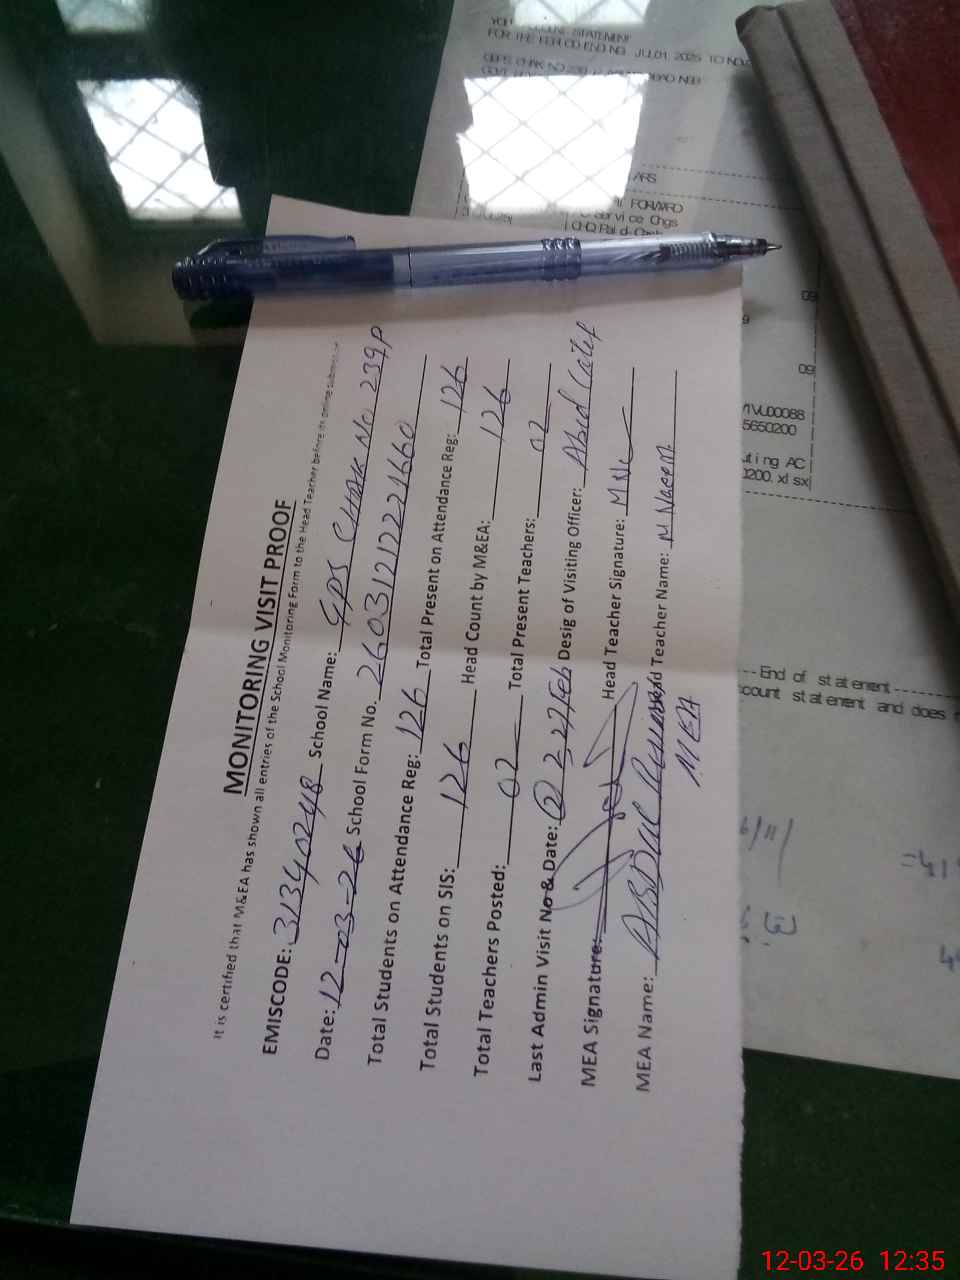 MONITORING VISIT PROOF
It is certified that M&EA has shown all entries of the School Monitoring Form to the Head Teacher before its online submission
EMISCODE: 31340248 School Name: GPS CHAK No 239P
Date: 12-03-26 School Form No. 2603121221660
Total Students on Attendance Reg: 126 Total Present on Attendance Reg: 126
Total Students on SIS: 126 Head Count by M&EA: 126
Total Teachers Posted: 02 Total Present Teachers: 02
Last Admin Visit No & Date: 2, 27 Feb Desig of Visiting Officer: Abid
MEA Signature: Head Teacher Signature:
MEA Name: ABDUL Head Teacher Name: M Naeem
MEA
ACCOUNT STATEMENT
FOR THE PERIOD ENDING JUL01, 2025 TO
FORWARD
Service Chgs
CHQ Paid-Cash
09
9
09
VL00088
5650200
uting AC
0200.xlsx
---End of statement---
count statement and does
12-03-26 12:35